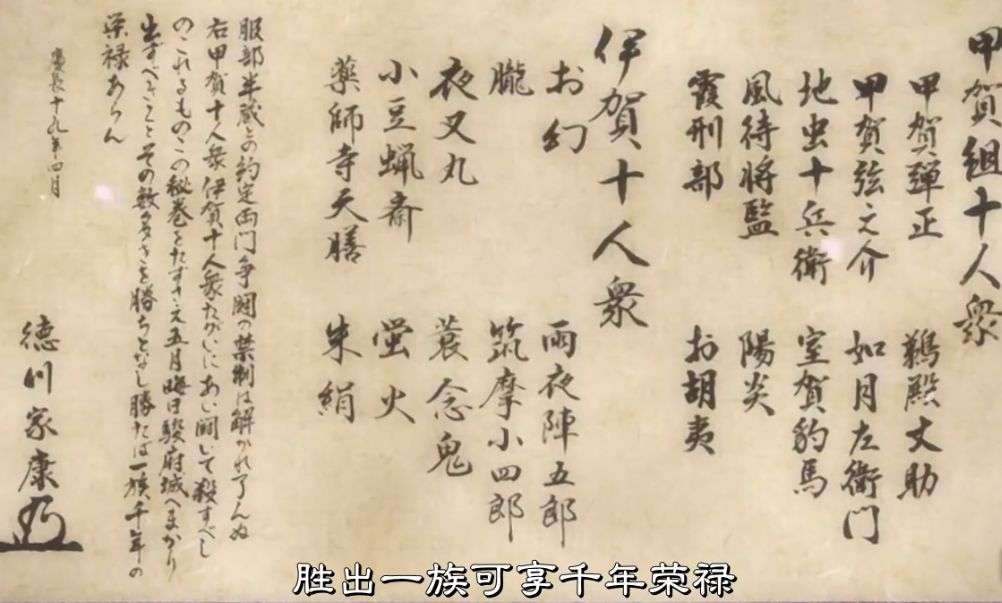 甲賀組十人衆
甲賀彈正 鵜殿丈助
甲賀弦之介 如月左衛門
地虫十兵衛 室賀豹馬
風待将監 陽炎
霞刑部 お胡夷
伊賀十人衆
お幻 雨夜陣五郎
朧 筑摩小四郎
夜叉丸 蓑念鬼
小豆蝋斎 蛍火
薬師寺天膳 朱絹
服部半蔵との約定両門争闘の禁制は解かれ了んぬ
右甲賀十人衆伊賀十人衆たがいにあい闘いて殺すべし
のこれるものこの秘巻をたずさえ五月晦日駿府城へまかり
出ずべきことその数多きを勝ちとなし勝たば一族千年の
栄禄あらん
慶長十九年四月
徳川家康
胜出一族可享千年荣禄